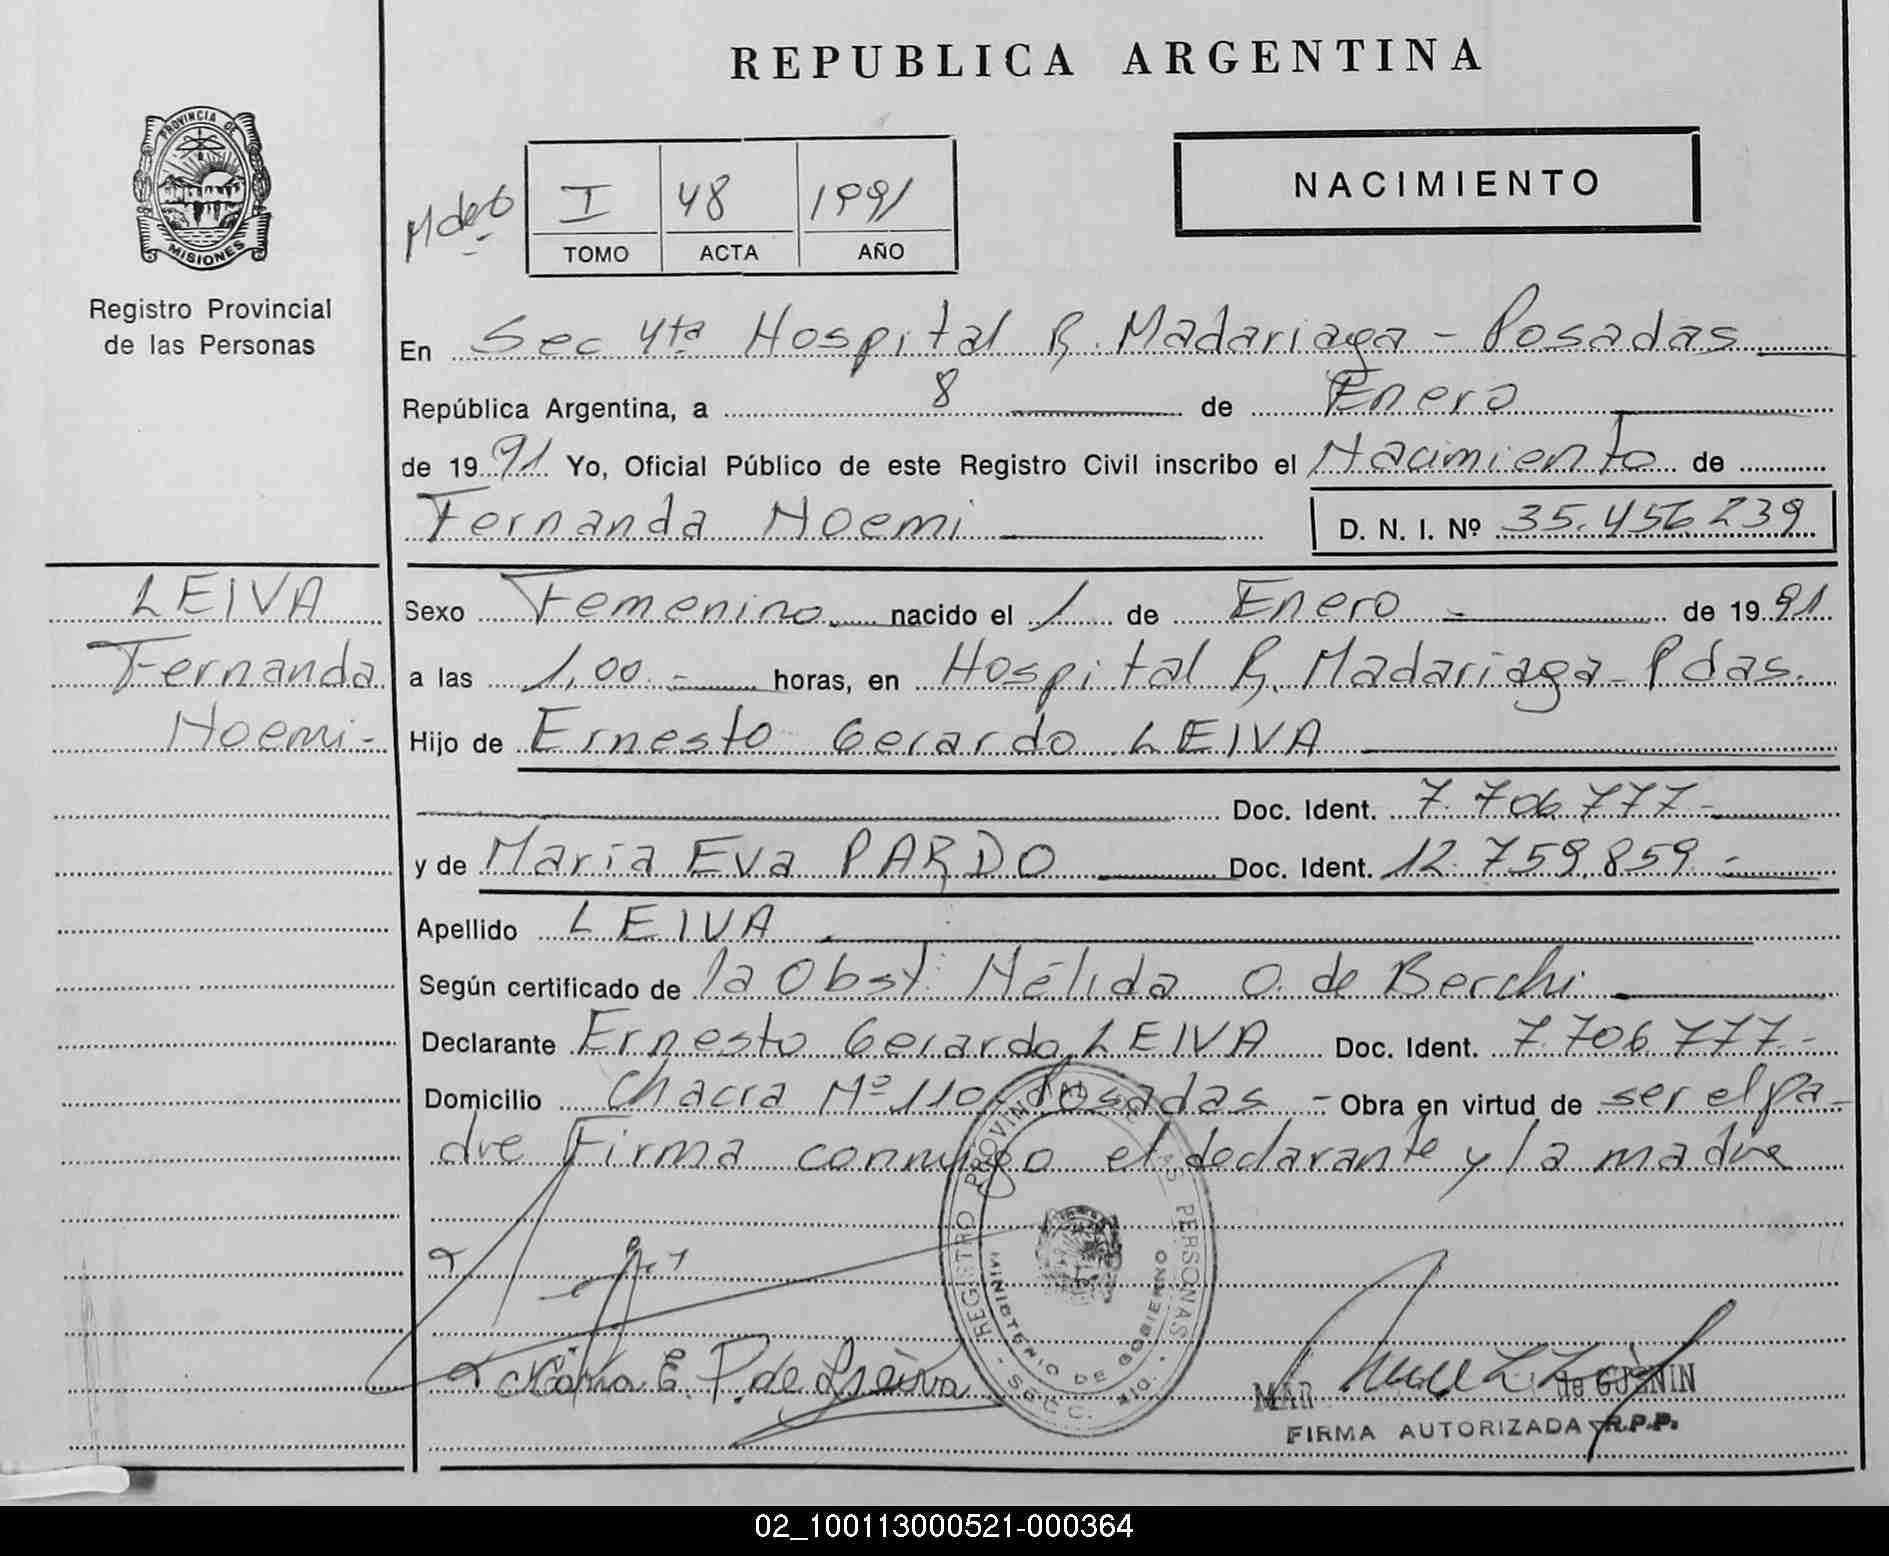 REPUBLICA ARGENTINA
PROVINCIA DE
MISIONES
Registro Provincial
de las Personas
I 48 1991
TOMO ACTA AÑO
NACIMIENTO
En Sec 4ta Hospital R. Madariaga - Posadas
República Argentina, a 8 de Enero
de 1991 Yo, Oficial Público de este Registro Civil inscribo el Nacimiento de
Fernanda Noemi D. N. I. Nº 35.456.239
LEIVA
Fernanda
Noemi-
Sexo Femenino nacido el 1 de Enero - de 1991
a las 1,00 - horas, en Hospital R. Madariaga - Pdas.
Hijo de Ernesto Gerardo LEIVA
Doc. Ident. 7.706.777-
y de María Eva PARDO Doc. Ident. 12.759.859.-
Apellido LEIVA
Según certificado de la Obst. Nélida O. de Berchi
Declarante Ernesto Gerardo LEIVA Doc. Ident. 7.706.777-
Domicilio Chacra Nº 110 - Posadas - Obra en virtud de ser el pa-
dre Firma conmigo el declarante y la madre
REGISTRO PROVINCIAL DE LAS PERSONAS
MINISTERIO DE GOBIERNO
María E. P. de Leiva
MAR de GUENIN
FIRMA AUTORIZADA R.P.P.
02_100113000521-000364